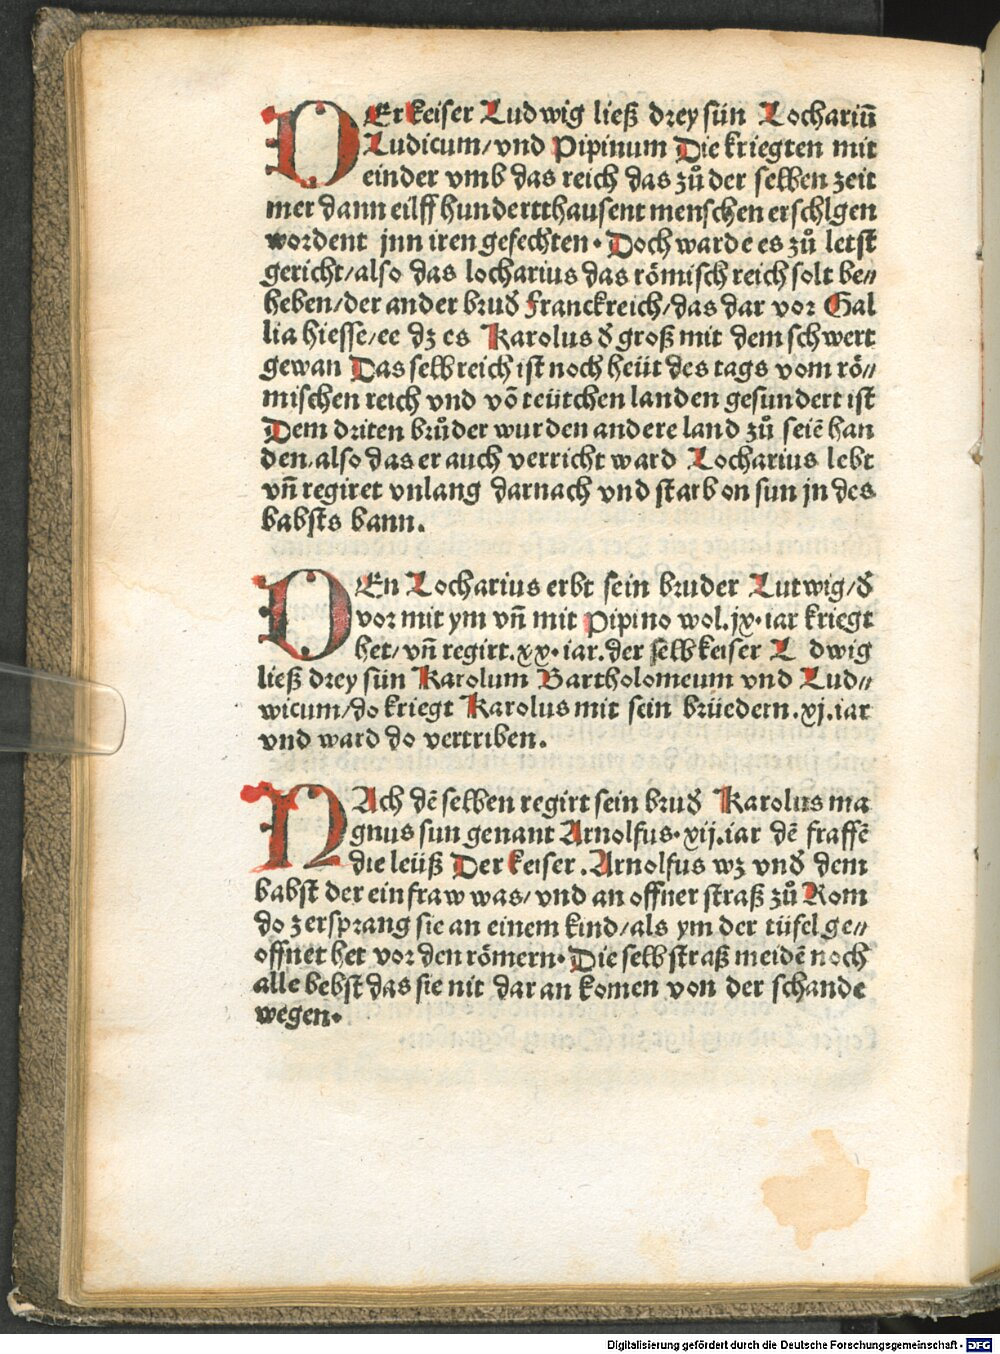 DEr keiser Ludwig ließ drey sün Locharium̄
Ludicum/vnd Pipinum Die kriegten mit
einder vmb das reich das zů der selben zeit
mer dann eilff hundertthausent menschen erschlgen
wordent jnn iren gefechten. Doch warde es zů letst
gericht/also das locharius das römisch reich solt be//
heben/der ander brud̕ franckreich/das dar vor Gal
lia hiesse/ee dz es Karolus d̕ groß mit dem schwert
gewan Das selb reich ist noch heüt des tags vom rö//
mischen reich vnd vō teütchen landen gesundert ist
Dem driten brůder wurden andere land zů seiē han
den.also das er auch verricht ward Locharius lebt
vn̄ regiret vnlang darnach vnd starb on sun jn des
babsts bann.
DEn Locharius erbt sein bruder Lutwig/d̕
vor mit ym vn̄ mit Pipino wol.jx.iar kriegt
het/vn̄ regirt.xx.iar.der selb keiser L dwig
ließ drey sün Karolum Bartholomeum vnd Lud//
wicum/do kriegt Karolus mit sein brüedern.xj.iar
vnd ward do vertriben.
NAch dē selben regirt sein brud̕ Karolus ma
gnus sun genant Arnolfus.xij.iar dē fraffē
die leüß Der keiser.Arnolfus wz vnd̕ dem
babst der ein fraw was/vnd an offner straß zů Rom
do zersprang sie an einem kind/als ym der tüfel ge//
offnet het vor den römern. Die selb straß meidē noch
alle bebst das sie nit dar an komen von der schande
wegen.
Digitalisierung gefördert durch die Deutsche Forschungsgemeinschaft - DFG